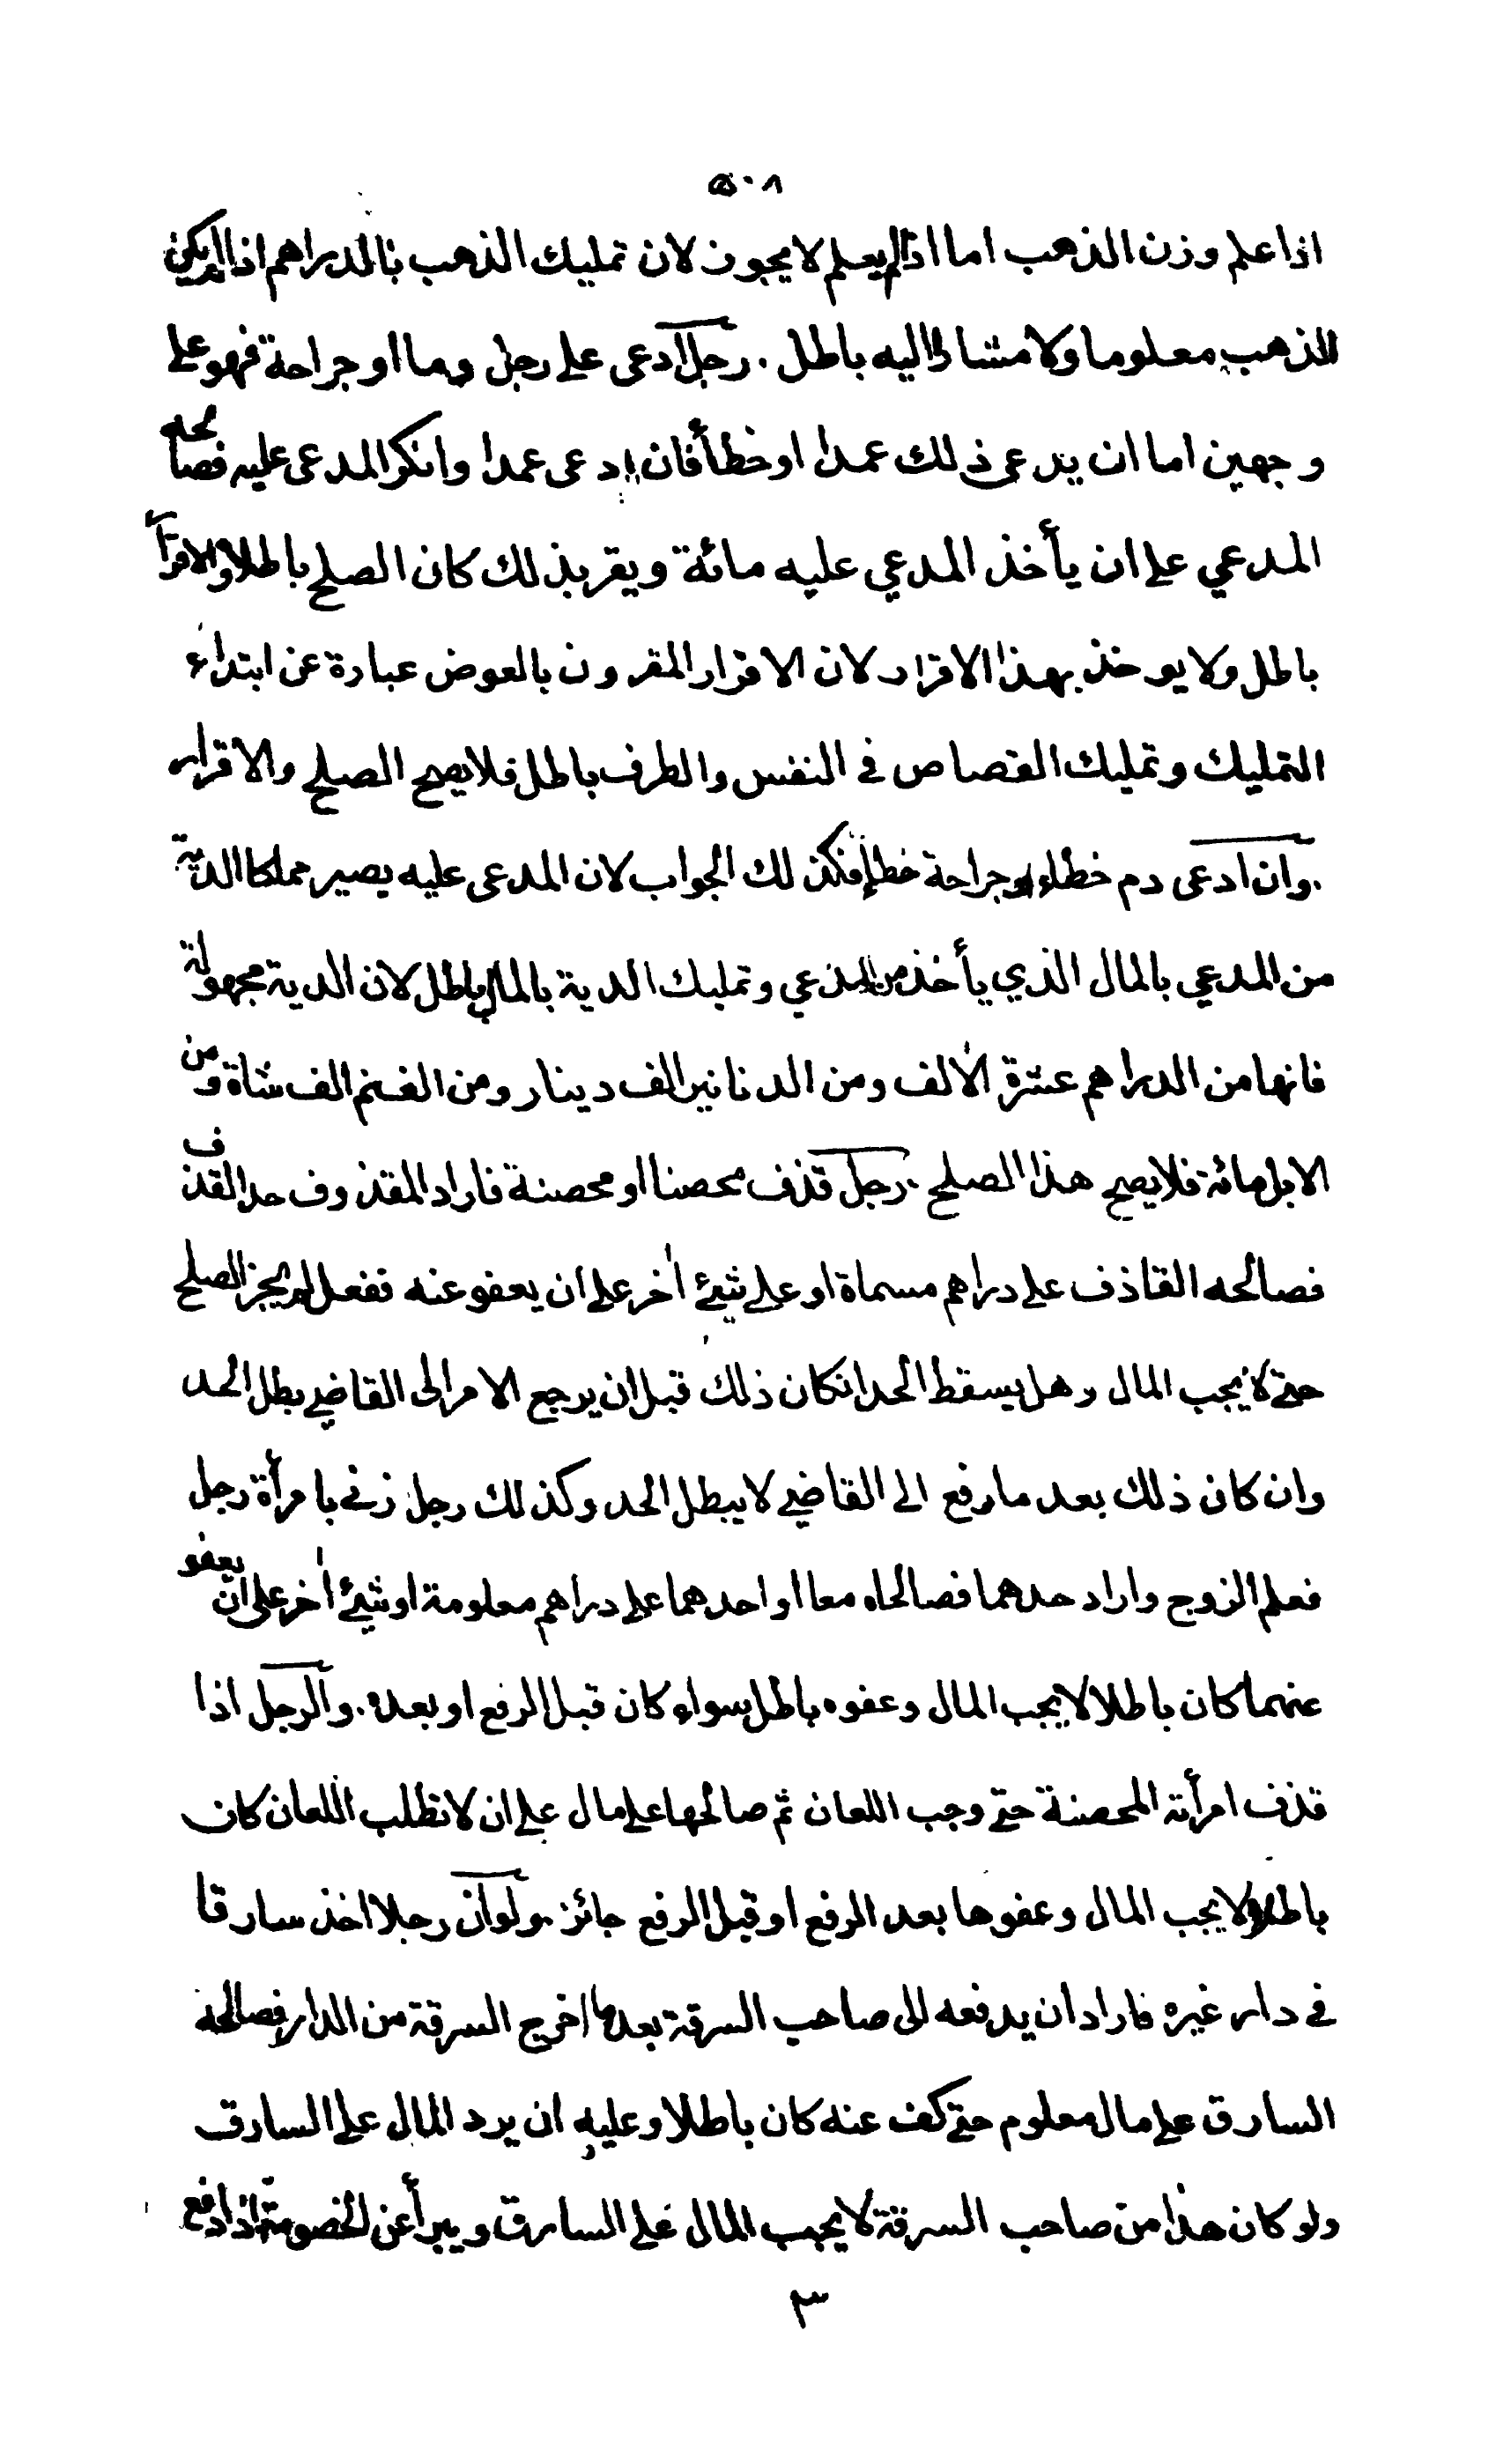 ٥٠٨
اذا علم وزن الذهب اما اذا لم يعلم لا يجوز لان تمليك الذهب بالدراهم اذا لم يكن
الذهب معلوما ولا مشارا اليه باطل . رجل ادعى على رجل دما او جراحة فهو على
وجهين اما ان يدعي ذلك عمدا او خطأ فان ادعى عمدا وانكر المدعى عليه فصالحه
المدعي على ان يأخذ المدعي عليه مائة ويقر بذلك كان الصلح باطلا والاقرار
باطل ولا يوخذ بهذا الاقرار لان الاقرار المقرون بالعوض عبارة عن ابتداء
التمليك وتمليك القصاص في النفس والطرف باطل فلا يصح الصلح والاقرار
. وان ادعى دم خطاء او جراحة خطأ فكذلك الجواب لان المدعى عليه يصير مملكا الدية
من المدعي بالمال الذي يأخذ من المدعي وتمليك الدية بالمال باطل لان الدية مجهولة
فانها من الدراهم عشرة الالف ومن الدنانير الف دينار ومن الغنم الف شاة ومن
الابل مائة فلا يصح هذا الصلح . رجل قذف محصنا او محصنة فاراد المقذوف حد القذف
فصالحه القاذف على دراهم مسماة او على شيئ اخر على ان يعفو عنه ففعل لم يجز الصلح
حتى لا يجب المال وهل يسقط الحد ان كان ذلك قبل ان يرجع الامر الى القاضي بطل الحد
وان كان ذلك بعد ما رفع الى القاضي لا يبطل الحد وكذلك رجل زنى بامرأة رجل
فعلم الزوج واراد حدهما فصالحاه معا او احدهما على دراهم معلومة او شيئ اخر على ان يعفو
عنهما كان باطلا لا يجب المال وعفوه باطل سواء كان قبل الرفع او بعده . والرجل اذا
قذف امرأته المحصنة حتى وجب اللعان ثم صالحها على مال على ان لا تطلب اللعان كان
باطلا ولا يجب المال وعفوها بعد الرفع او قبل الرفع جائز . ولو ان رجلا اخذ سارقا
في دار غيره فاراد ان يدفعه الى صاحب السرقة بعد ما اخرج السرقة من الدار فصالحه
السارق على مال معلوم حتى كف عنه كان باطلا وعليه ان يرد المال على السارق
ولو كان هذا من صاحب السرقة لا يجب المال على السارق ويبرأ عن الخصومة اذا دفع
٣